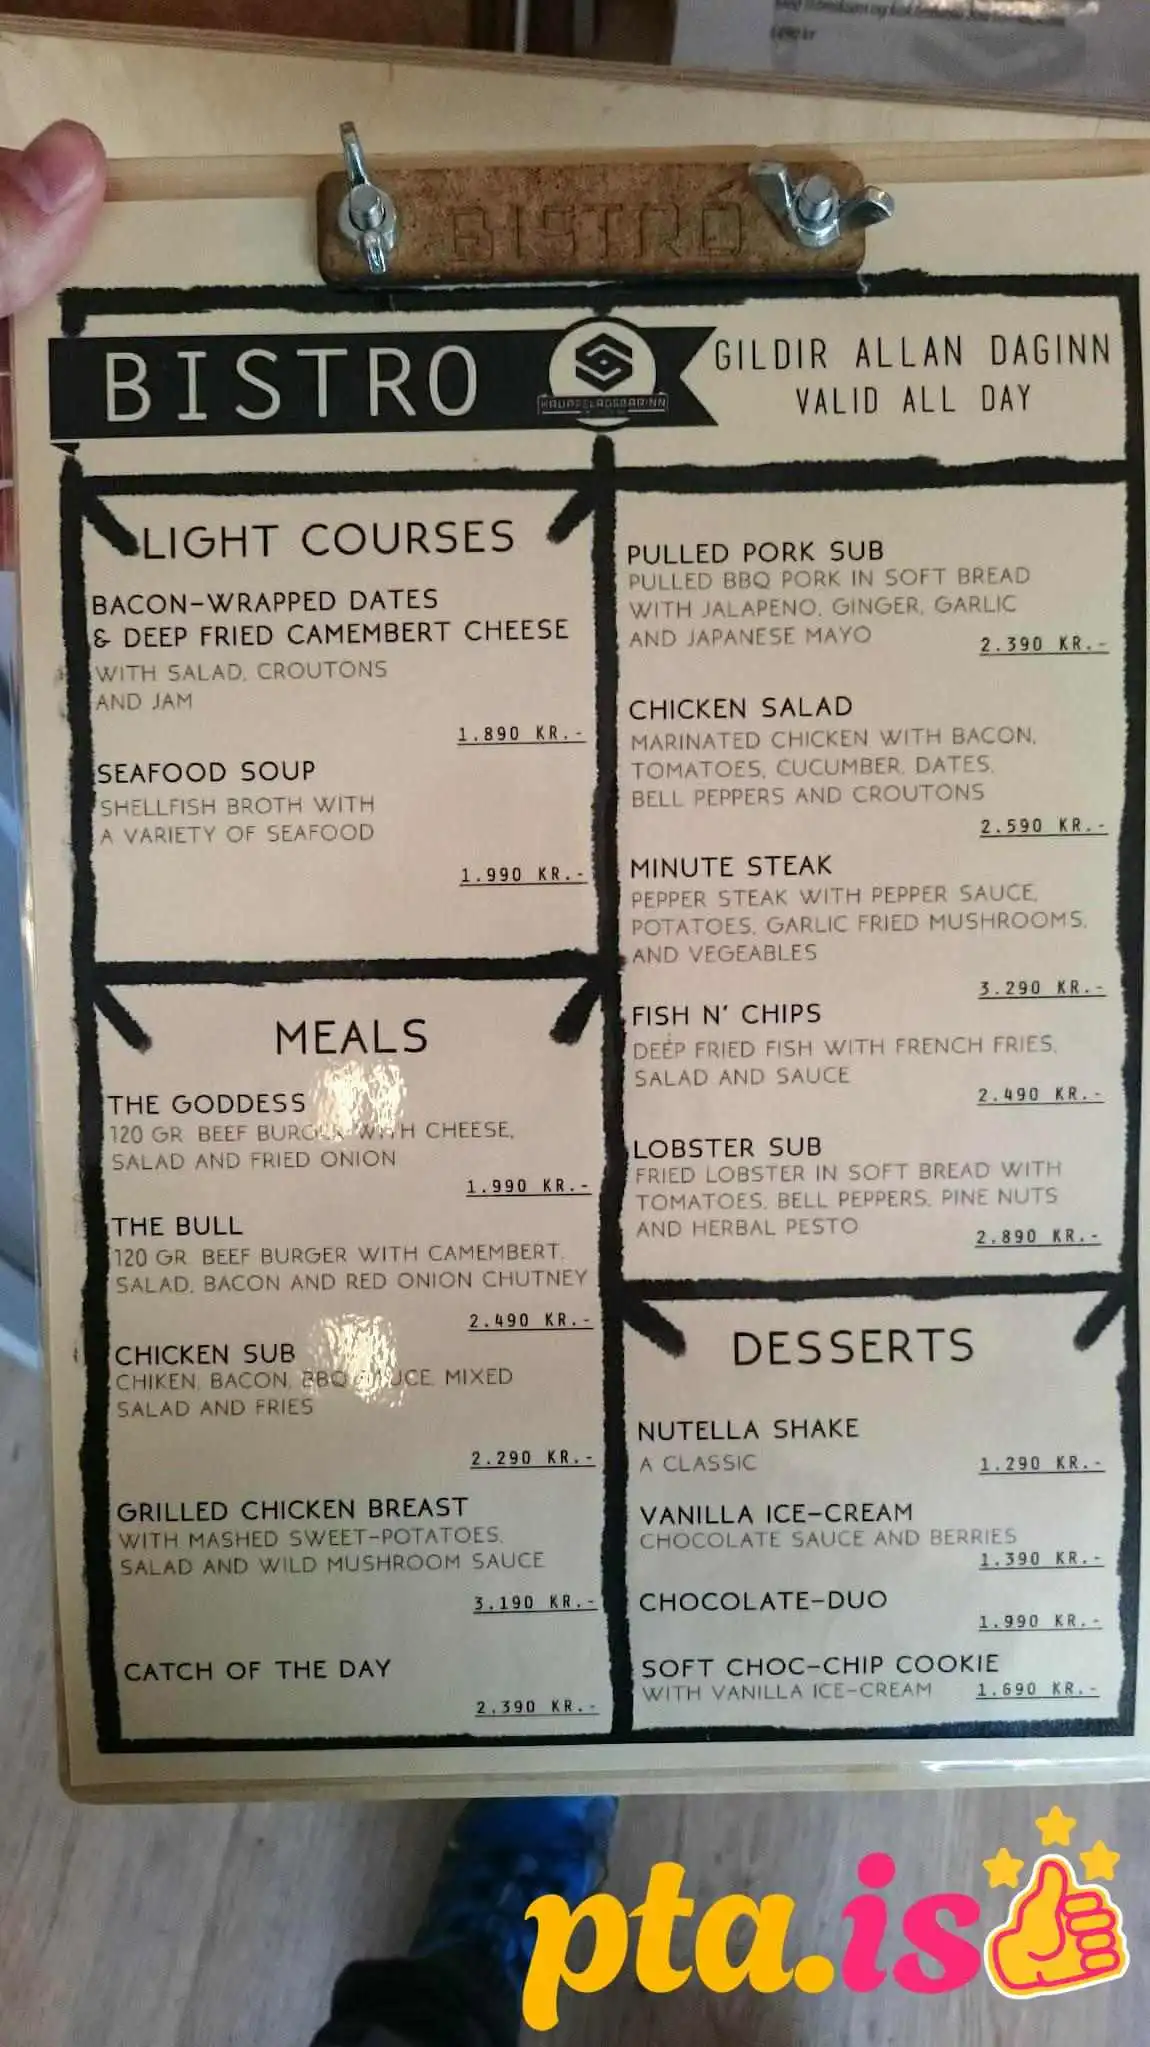 1490 kr
BISTRO
BISTRO
GILDIR ALLAN DAGINN
VALID ALL DAY
LIGHT COURSES
BACON-WRAPPED DATES
& DEEP FRIED CAMEMBERT CHEESE
WITH SALAD, CROUTONS
AND JAM
1.890 KR.-
SEAFOOD SOUP
SHELLFISH BROTH WITH
A VARIETY OF SEAFOOD
1.990 KR.-
MEALS
THE GODDESS
120 GR BEEF BURGER WITH CHEESE,
SALAD AND FRIED ONION
1.990 KR.-
THE BULL
120 GR BEEF BURGER WITH CAMEMBERT,
SALAD, BACON AND RED ONION CHUTNEY
2.490 KR.-
CHICKEN SUB
CHIKEN, BACON, BBQ SAUCE, MIXED
SALAD AND FRIES
2.290 KR.-
GRILLED CHICKEN BREAST
WITH MASHED SWEET-POTATOES,
SALAD AND WILD MUSHROOM SAUCE
3.190 KR.-
CATCH OF THE DAY
2.390 KR.-
PULLED PORK SUB
PULLED BBQ PORK IN SOFT BREAD
WITH JALAPENO, GINGER, GARLIC
AND JAPANESE MAYO
2.390 KR.-
CHICKEN SALAD
MARINATED CHICKEN WITH BACON,
TOMATOES, CUCUMBER, DATES,
BELL PEPPERS AND CROUTONS
2.590 KR.-
MINUTE STEAK
PEPPER STEAK WITH PEPPER SAUCE,
POTATOES, GARLIC FRIED MUSHROOMS,
AND VEGEABLES
3.290 KR.-
FISH N' CHIPS
DEEP FRIED FISH WITH FRENCH FRIES,
SALAD AND SAUCE
2.490 KR.-
LOBSTER SUB
FRIED LOBSTER IN SOFT BREAD WITH
TOMATOES, BELL PEPPERS, PINE NUTS
AND HERBAL PESTO
2.890 KR.-
DESSERTS
NUTELLA SHAKE
A CLASSIC
1.290 KR.-
VANILLA ICE-CREAM
CHOCOLATE SAUCE AND BERRIES
1.390 KR.-
CHOCOLATE-DUO
1.990 KR.-
SOFT CHOC-CHIP COOKIE
WITH VANILLA ICE-CREAM
1.690 KR.-
pta.is